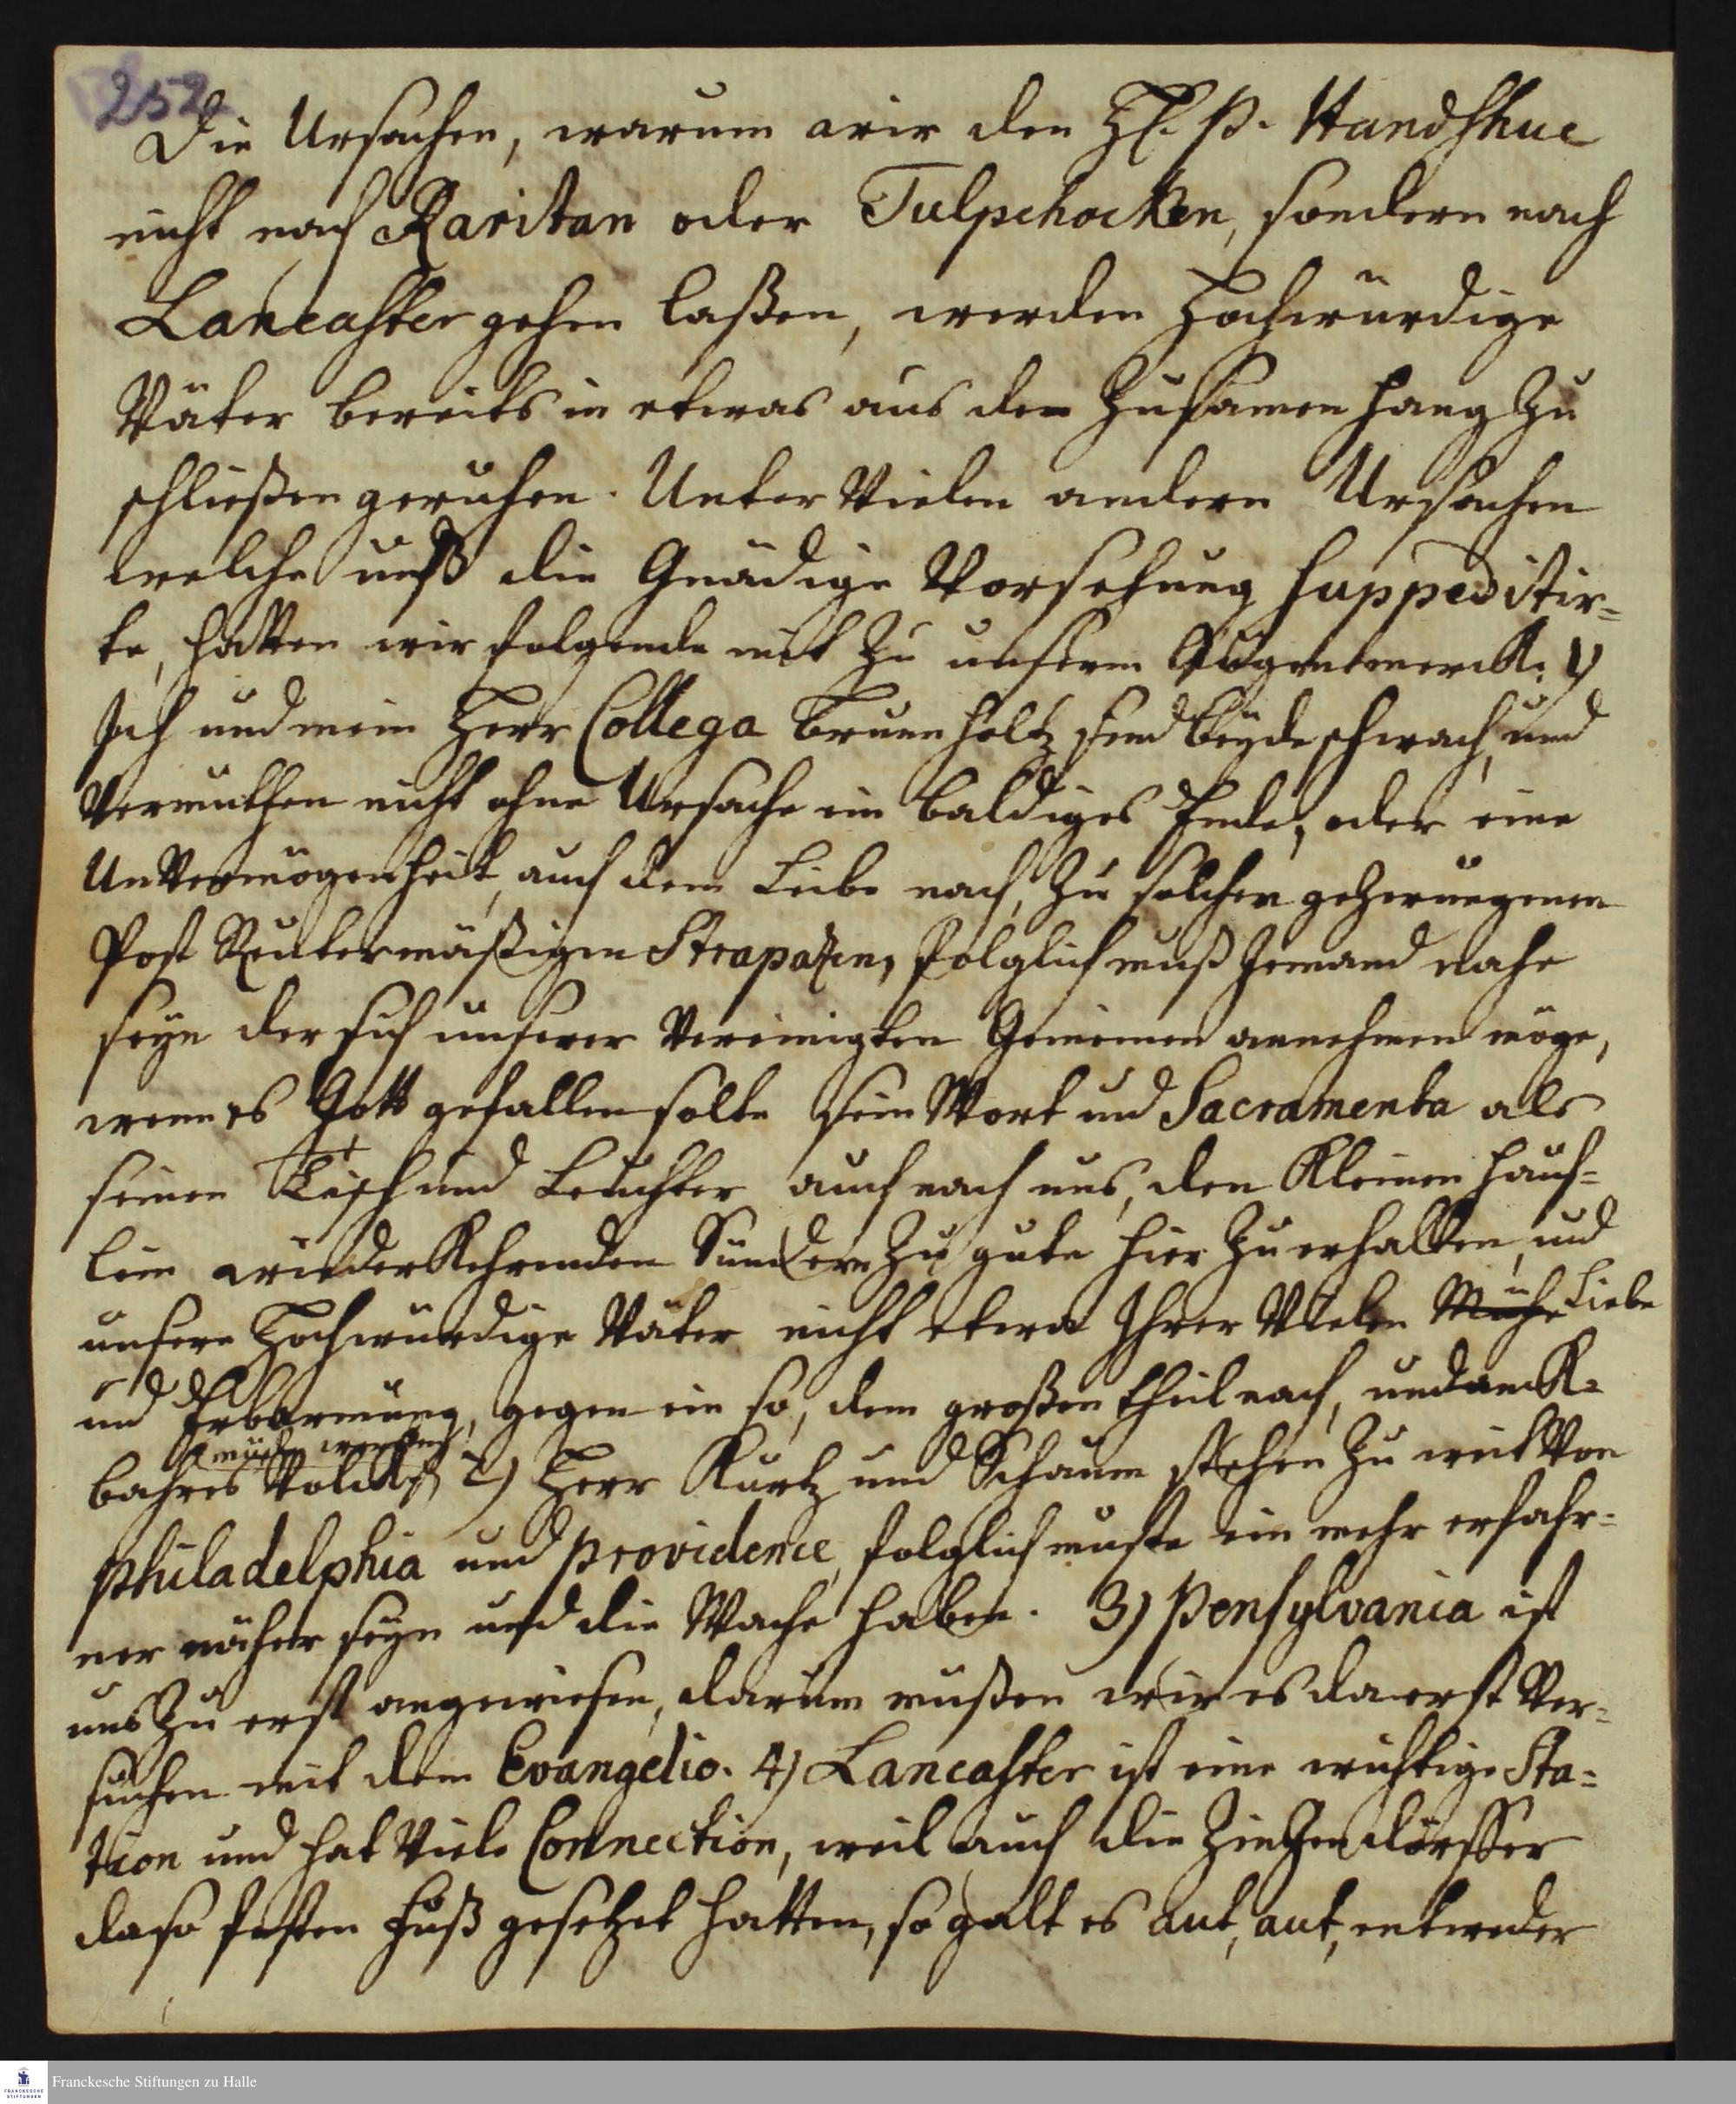 252
Die Ursachen, warum wir den H. P. Handshue
nicht nach Raritan oder Tulpehocken, sondern nach
Lancaster gehen laßen, werden Hochwürdige
Väter bereits in etwas aus dem Zusamenhang zu
schließen geruhen. Unter Vielen andern Ursachen
welche unß die Gnädige Vorsehung suppeditir=
te, hatten wir folgende mit zu unserm Augenmerck: 1)
Ich und mein Herr Collega Brunnholtz sind beyde schwach, und
Vermuthen nicht ohne Ursache ein baldiges Ende, oder eine
UnVermögenheit, auch dem Leibe nach, zu solchen gezwungenen
Post Reutermäßigen Strapazen, folglich muß Jemand nahe
seyn der sich unserer Vereinigten Gemeinen annehmen möge,
wenn es Gott gefallen solte sein Wort und Sacramenta als
seinen Tisch und Leuchter auch nach uns, den Kleinen Häuf=
lein wiederkehrenden Sündern zu gute hier zu erhalten, und
unsere Hochwürdige Väter nicht etwa Ihrer Vielen Mühe Liebe
und Erbarmung, gegen ein so, dem großen theil nach, undanck=
müde werden
bahres Volck, 2) Herr Kurtz und Schaum stehen zu weit Von
Philadelphia und Providence, folglich muste ein mehr erfahr=
ner näher seyn und die Wache haben. 3) Pensylvania ist
uns zu erst angewiesen, darum mußen wir es da erst Ver=
suchen mit dem Evangelio. 4) Lancaster ist eine wichtige Sta=
tion und hat Viele Connection, weil auch die Zinzendörffer
da so festen Fuß gesetzet hatten, so galt es aut, aut, entweder
Franckesche Stiftungen zu Halle